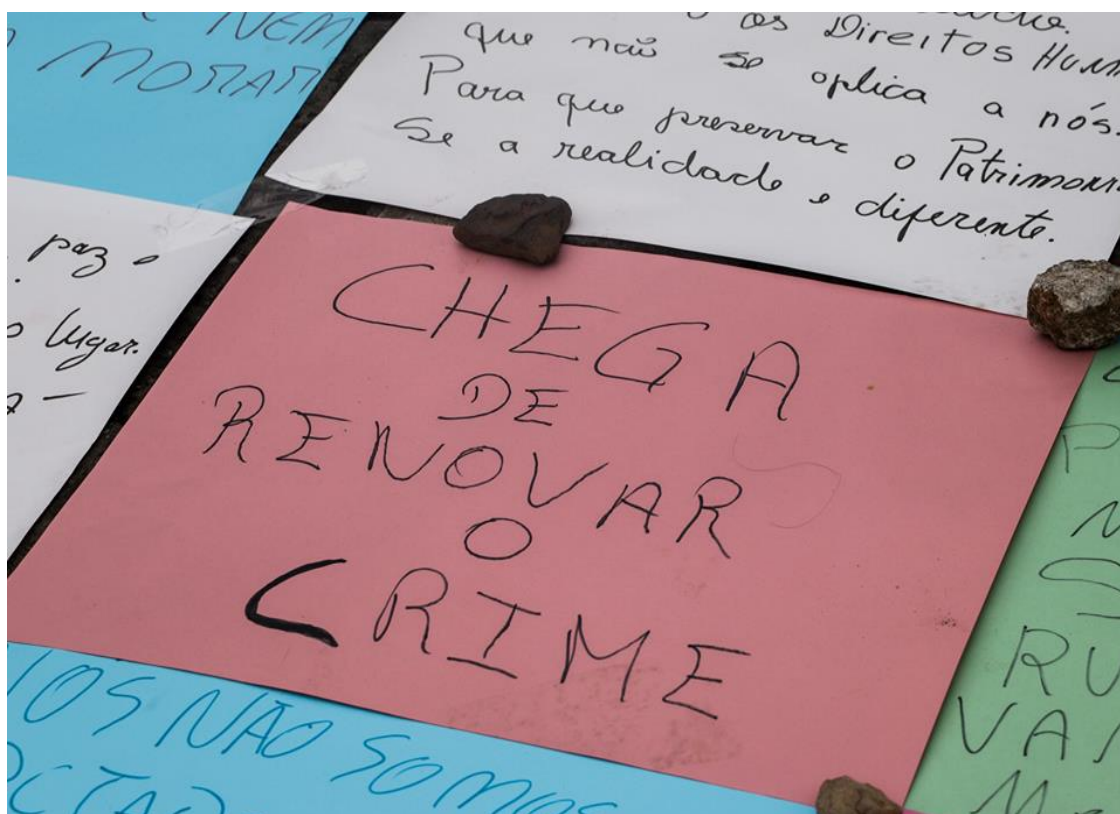 NEM
MORAR
os Direitos Hum
que não se oplica a nós.
Para que preservar o Patrimoni
Se a realidade e diferente.
paz e
lugar.
CHEGA
DE
RENOVAR
O
CRIME
NÃO SOMOS
RU
VAI